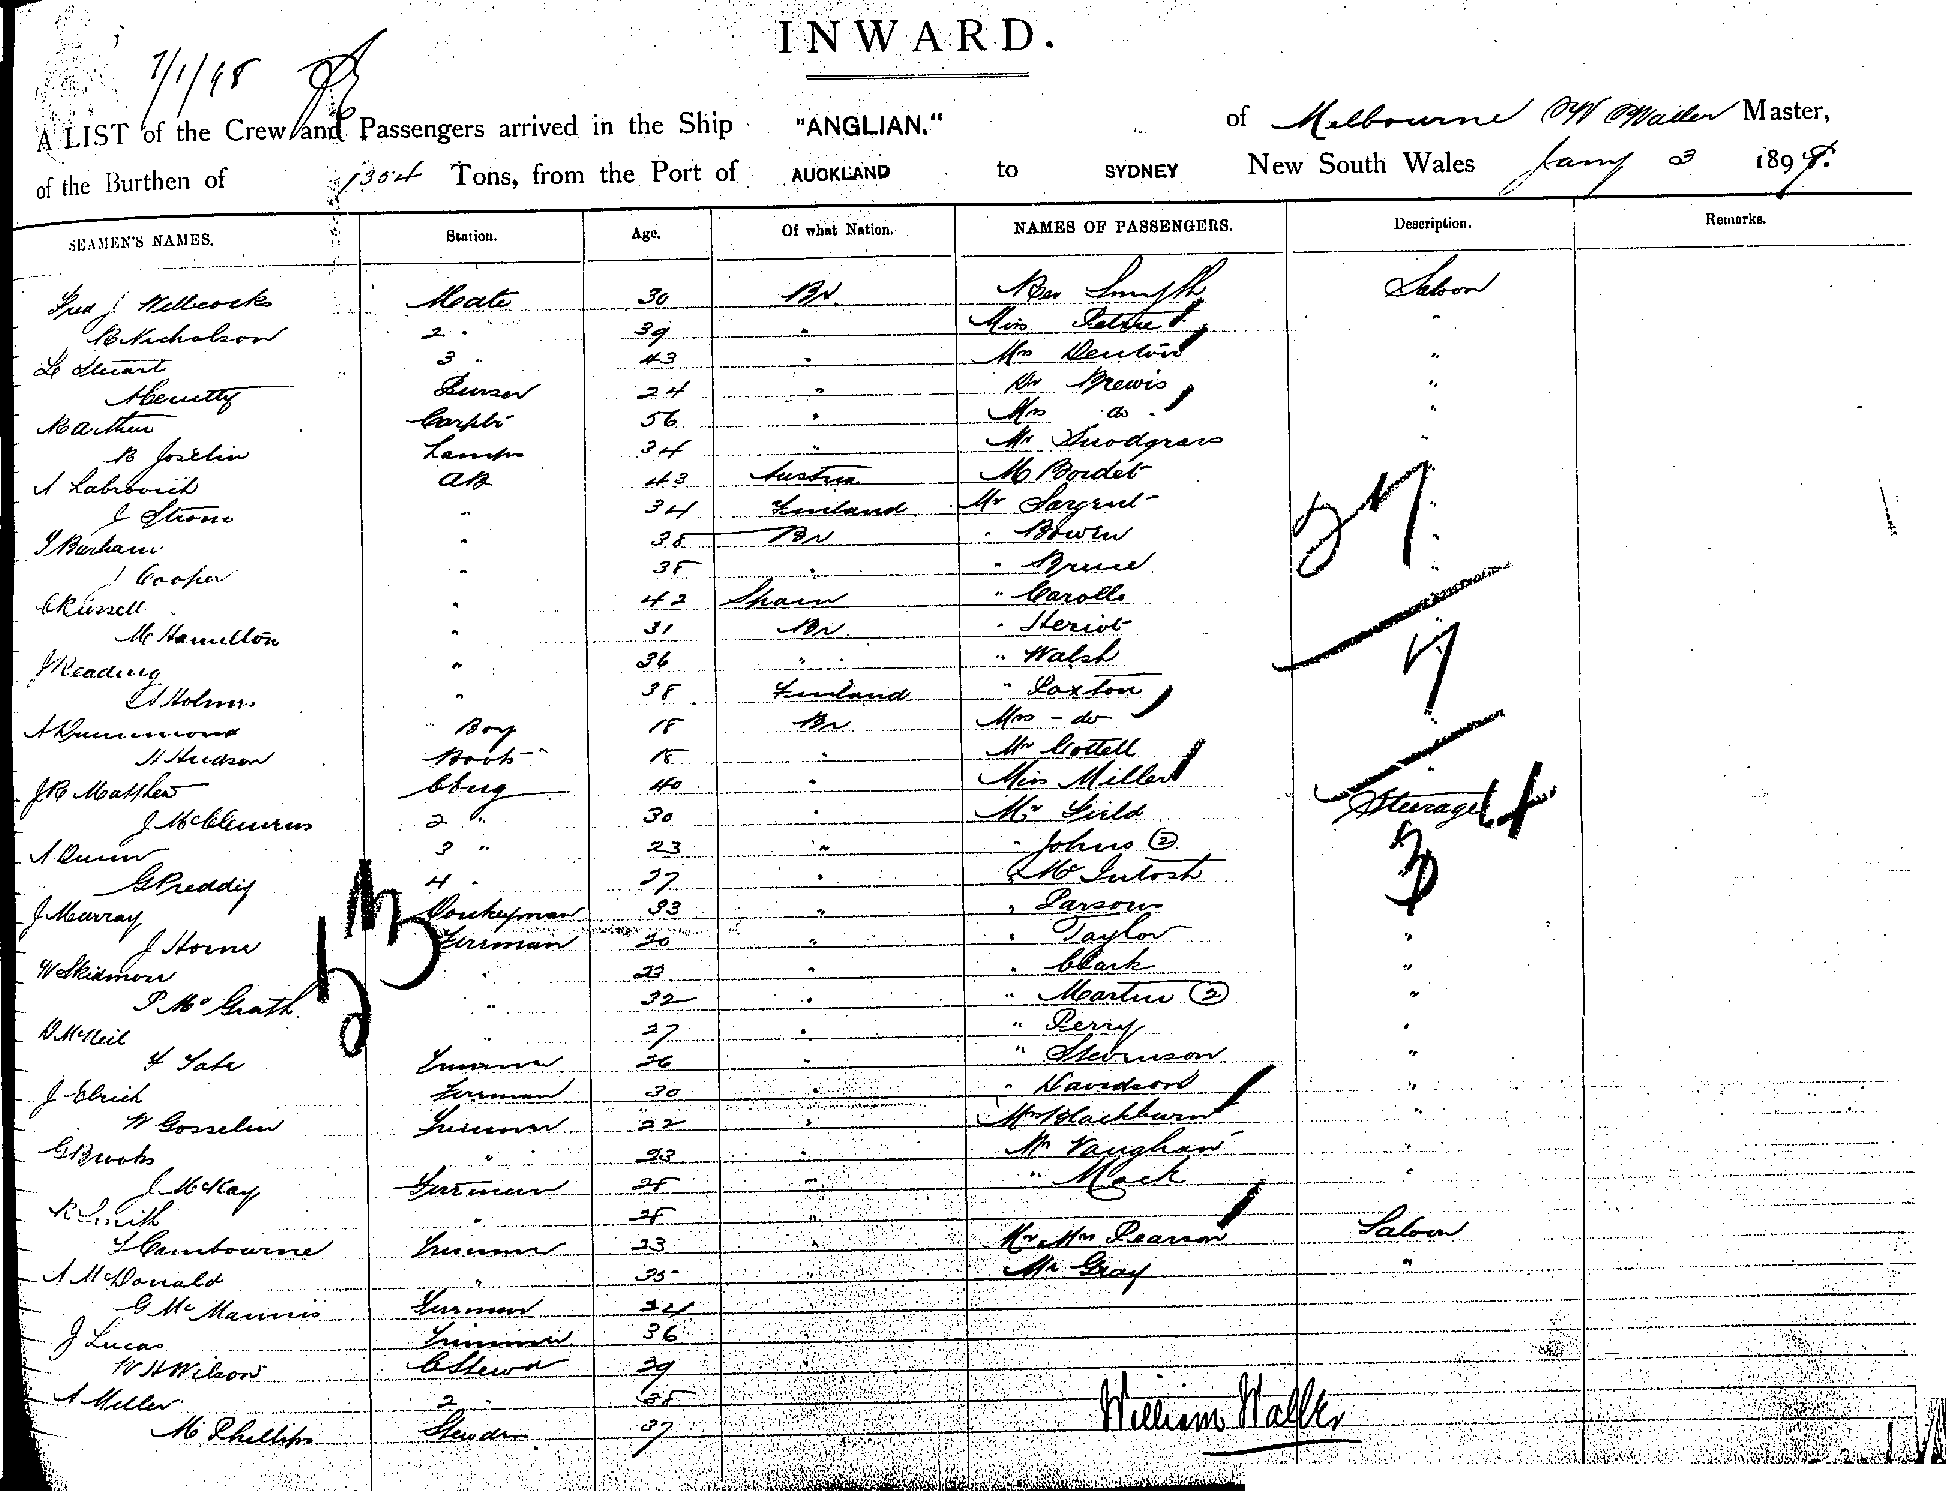 INWARD.
7/1/98
A LIST of the Crew and Passengers arrived in the Ship "ANGLIAN." of Melbourne W Waller Master,
of the Burthen of 1304 Tons, from the Port of AUCKLAND to SYDNEY New South Wales Jany 3 1898.
SEAMEN'S NAMES. Station. Age. Of what Nation. NAMES OF PASSENGERS. Description. Remarks.
Fred J Willcocks Mate 30 Br. Rev Smyth Saloon
R Nicholson 2 " 39 " Miss Petrie "
Stuart 3 " 43 " Mrs Denton "
Purser 24 " Dr Brewis "
R Arthur Carptr 56 " Mrs do "
R Joselin Lamps 34 " Mr Snodgrass "
A Labrovich AB 43 Austria M Bordet "
J Strom " 34 Finland Mr Sargent "
Barham " 38 Br " Bowen "
J Cooper " 38 " " Bruce "
C Russell " 42 Spain " Carolle
M Hamilton " 31 Br. " Heriot
J Reading " 36 " " Walsh
Holmes " 38 Finland " Paxton
A Drummond " Boy 18 Br. Mrs - do
H Hudson Boots 18 " Mr Cottell
J R Matthew C Eng 40 " Miss Miller "
J McClemens 2 " 30 " Mr Field Steerage
A Dunn 3 " 23 " " Johns (2)
G Preddy 4 " 27 " " McIntosh
J Murray Donkeyman 33 " " Parsons
J Horne Fireman 20 " " Taylor "
W Skidmore " 23 " " Clark "
P McGrath " 32 " " Martin (2) "
D McNeil " 27 " " Perry "
F Tate Trimmer 26 " " Stevenson "
J Elrich Fireman 30 " " Davidson "
W Gosselin Trimmer 22 " Mrs Blackburn "
G Brooks " 23 " Mr Vaughan "
J McKay Fireman 28 " " Mack "
R Smith " 28 "
Cambourne Trimmer 23 " Mr Mrs Pearson Saloon
A McDonald " 35 " Mr Gray "
G McMannis Fireman 24
J Lucas Trimmer 36
W H Wilson C Stewd 39
A Miller 2 " 28
M Phillips Stewdss 37
William Waller